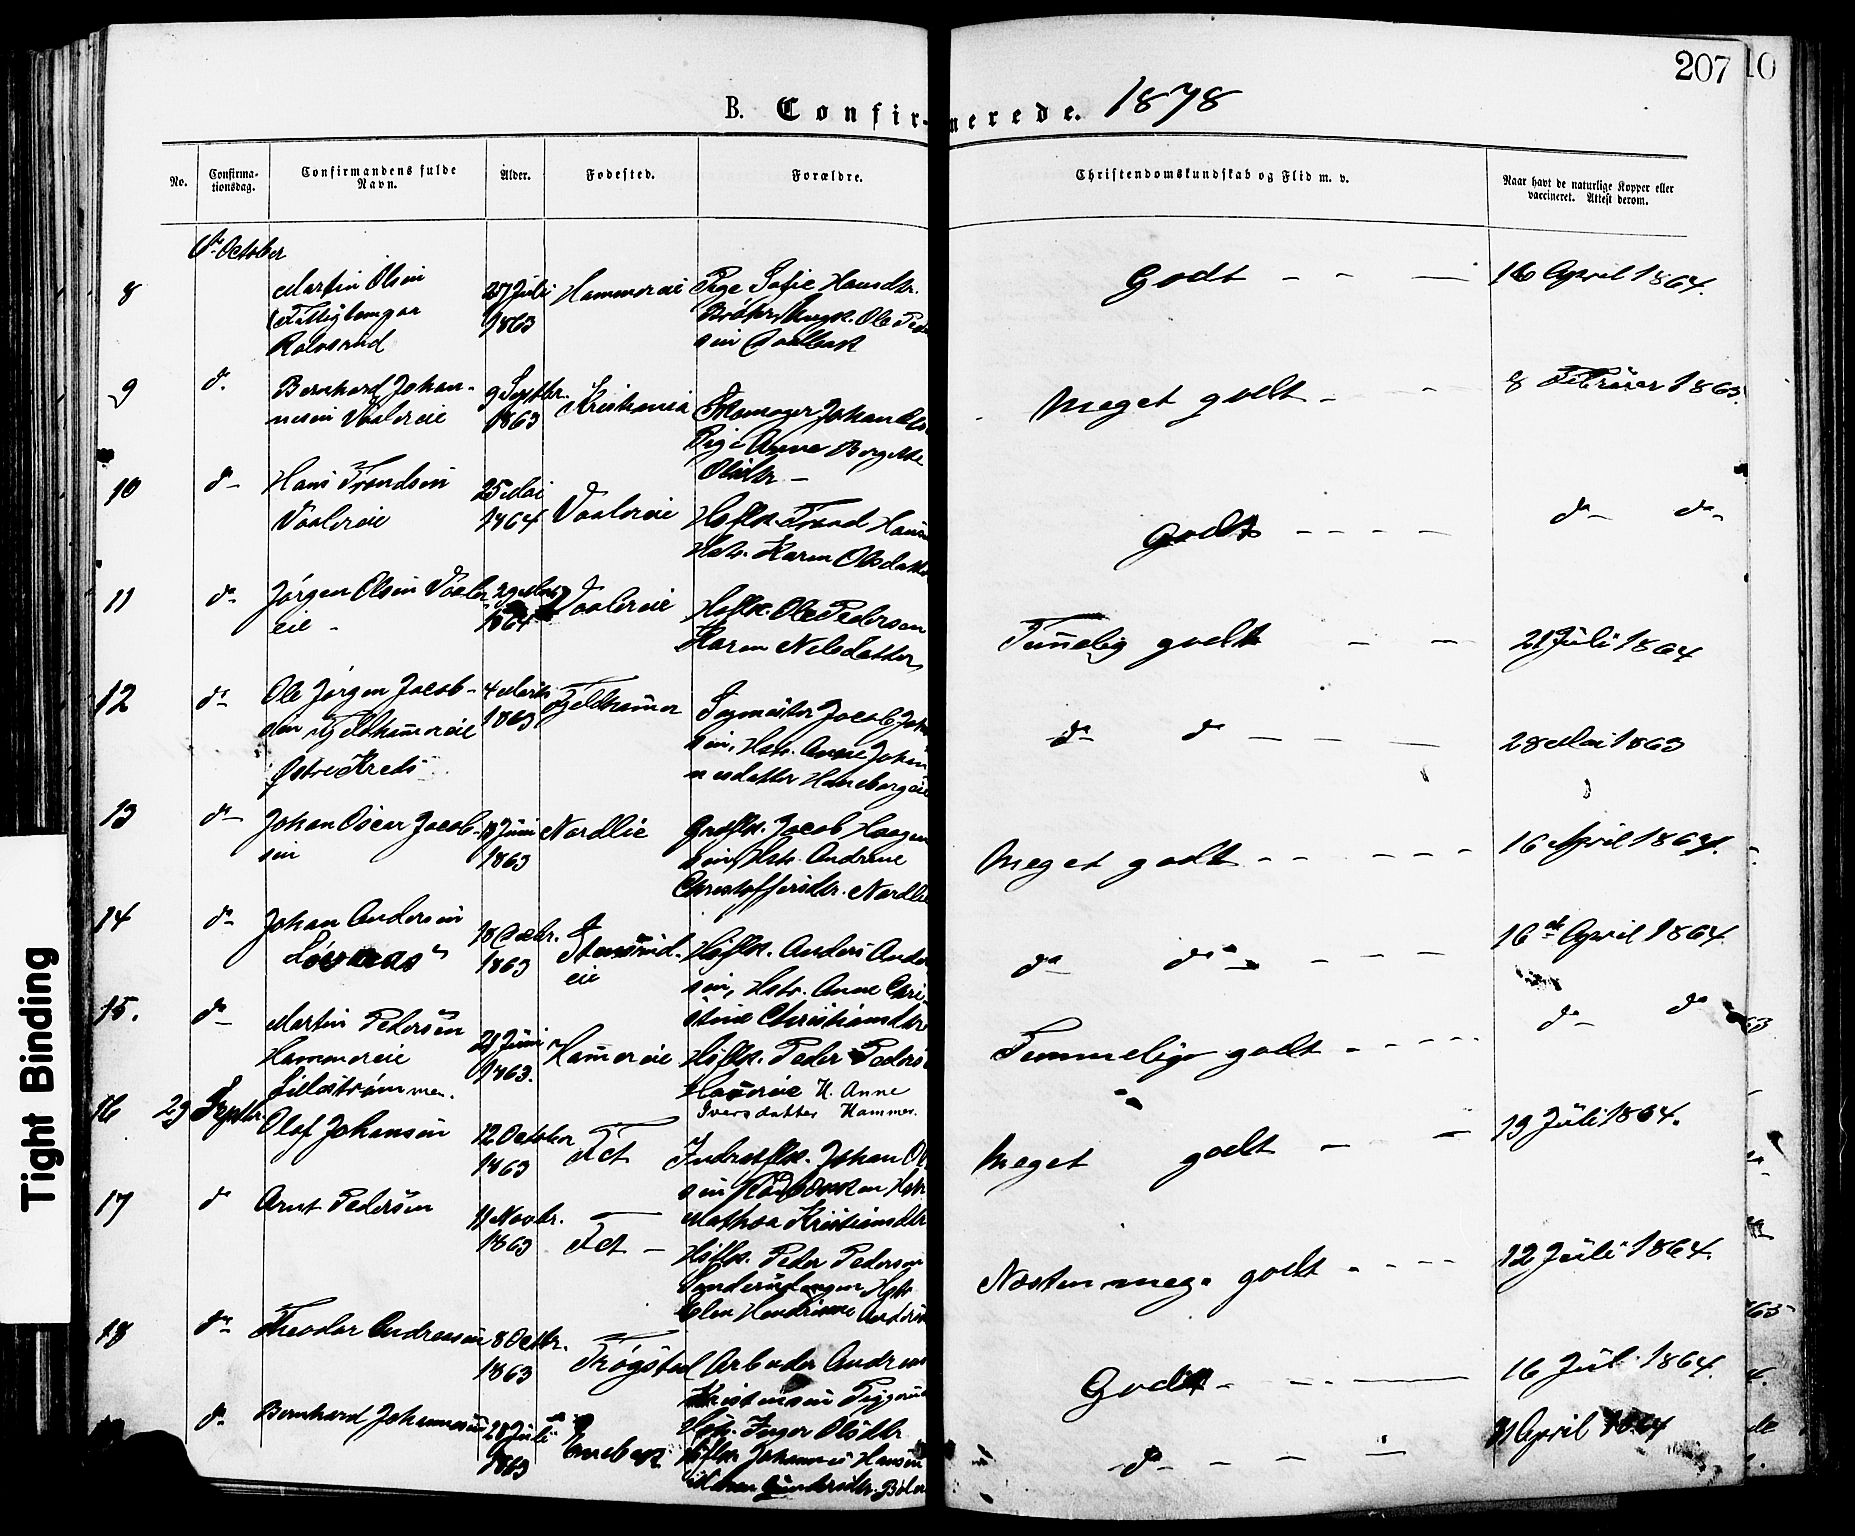 207
10
B. Confirmerede. 1878
No.
Confirma-
tionsdag.
Confirmandens fulde
Navn.
Alder.
Fødested.
Forældre.
Christendomskundskab og Flid m. v.
Naar havt de naturlige Kopper eller
vaccineret. Attest derom.
October
8
Martin Olsen
Rolvsrud
27 Juli
1863
Hammereie
Pige Sofie Hansdtr.
Ungk. Ole Peder
sen
Godt - - -
16 April 1864.
9
do.
Bernhard Johan-
nesen Vaalereie
9 Septbr.
1863
Kristiania
Johan
Pige Anne Borgitte
Olsdtr -
Meget godt - -
8 Februar 1865.
10
do -
Hans Trondsen
Vaalereie
25 Mai
1864
Vaalereie
Hsflk. Trond Hans
Hstr. Karen Olsdatter
godt - - - -
do - do -
11
do -
Jörgen Olsen Vaaler
eie -
1864
Vaalereie
Hsflk. Ole Pedersen
Karen Nilsdatter
Temelig godt - -
21 Juli 1864
12
do -
Ole Jörgen Jacob-
sen Fjeldhamereie
Østre Kreds
4 Marts
1863
Fjeldhamer
Jacob Joh
sen, Hstr. Anne Johan
nesdatter Haneborgeie
do - do - - -
28 Mai 1863
13
do -
Johan Oscar Jacob-
sen
Juni
1863
Nordlie
Grdflk. Jacob Haagen
sen, Hstr. Andrine
Christoffersdtr. Nordlie
Meget godt - - - - -
16 April 1864.
14
do -
Johan Andersen
Løvnaas
18 Octbr.
1863
Stensrud-
eie
Hsflk. Anders Ander
sen, Hstr. Anne Chri-
stine Christiansdtr
do - do - - - -
16de April 1864
15.
do -
Martin Pedersen
Hammereie
Lillestrømmen.
21 Juni
1863.
Hamereie
Hsflk. Peder Peders
Hamereie H. Anne
Iversdatter Hammer.
Temmelig godt - - - -
do - do
16
29 Septbr.
Olaf Johansen
12 October
1863
Fet
Indrstflk. Johan Ol
sen Hstr
Mathea Kristiansdtr
Meget godt - -
19 Juli 1864.
17
do
Arnt Pedersen
11 Novbr.
1863
Fet -
Hsflk. Peder Pedersen
Hstr
Elen Hendrine Anders
Næsten meg. godt - - - -
12 Juli 1864
18
do -
Theodor Andreassen
8 Octbr.
1863
Trögstad
Arbeider Andreas
Kristensen
Hstr. Inger Olsdtr.
Godt - - -
16 Juli 1864.
do -
Bernhard Johannesen
28 Juli
1863
Enebak
Hsflk. Johannes Hansen
- do - - - -
11 April 1864
Tight Binding